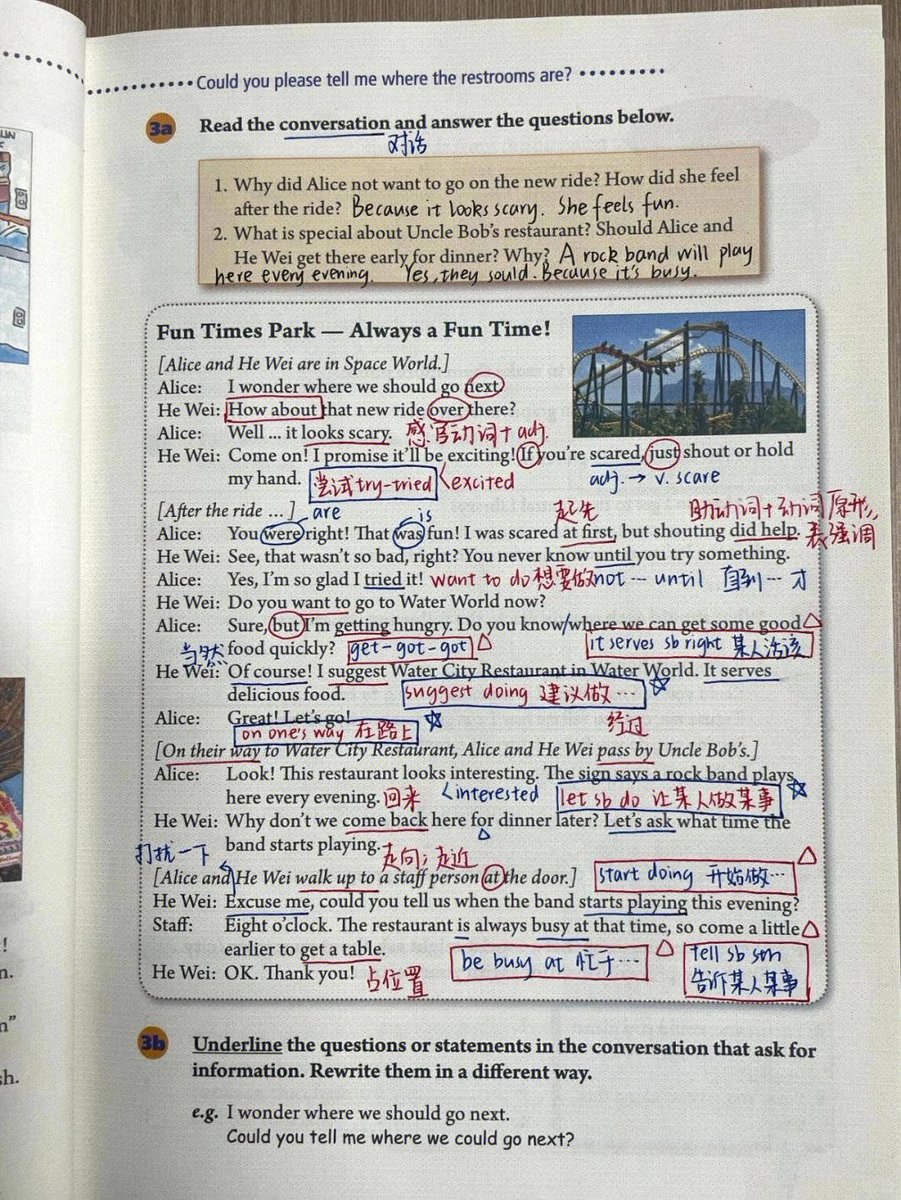 Could you please tell me where the restrooms are?
3a Read the conversation and answer the questions below.
对话
1. Why did Alice not want to go on the new ride? How did she feel
after the ride? Because it looks scary. She feels fun.
2. What is special about Uncle Bob's restaurant? Should Alice and
He Wei get there early for dinner? Why? A rock band will play
here every evening. Yes, they sould. Because it's busy.
Fun Times Park — Always a Fun Time!
[Alice and He Wei are in Space World.]
Alice: I wonder where we should go next.
He Wei: How about that new ride over there?
Alice: Well ... it looks scary. 感官动词+adj.
He Wei: Come on! I promise it'll be exciting! If you're scared, just shout or hold
my hand. 尝试try-tried excited adj. → v. scare
[After the ride ... ] are is 起先 助动词+动词原形,
Alice: You were right! That was fun! I was scared at first, but shouting did help. 表强调
He Wei: See, that wasn't so bad, right? You never know until you try something.
Alice: Yes, I'm so glad I tried it! want to do 想要做 not … until 直到…才
He Wei: Do you want to go to Water World now?
Alice: Sure, but I'm getting hungry. Do you know/where we can get some good
当然 food quickly? get-got-got it serves sb right 某人活该
He Wei: Of course! I suggest Water City Restaurant in Water World. It serves
delicious food. suggest doing 建议做…
Alice: Great! Let's go!
on one's way 在路上 经过
[On their way to Water City Restaurant, Alice and He Wei pass by Uncle Bob's.]
Alice: Look! This restaurant looks interesting. The sign says a rock band plays
here every evening. 回来 interested let sb do 让某人做某事
He Wei: Why don't we come back here for dinner later? Let's ask what time the
band starts playing.
打扰一下 走向；走近
[Alice and He Wei walk up to a staff person at the door.] start doing 开始做…
He Wei: Excuse me, could you tell us when the band starts playing this evening?
Staff: Eight o'clock. The restaurant is always busy at that time, so come a little
earlier to get a table. be busy at 忙于… tell sb sth
He Wei: OK. Thank you! 占位置 告诉某人某事
3b Underline the questions or statements in the conversation that ask for
information. Rewrite them in a different way.
e.g. I wonder where we should go next.
Could you tell me where we could go next?